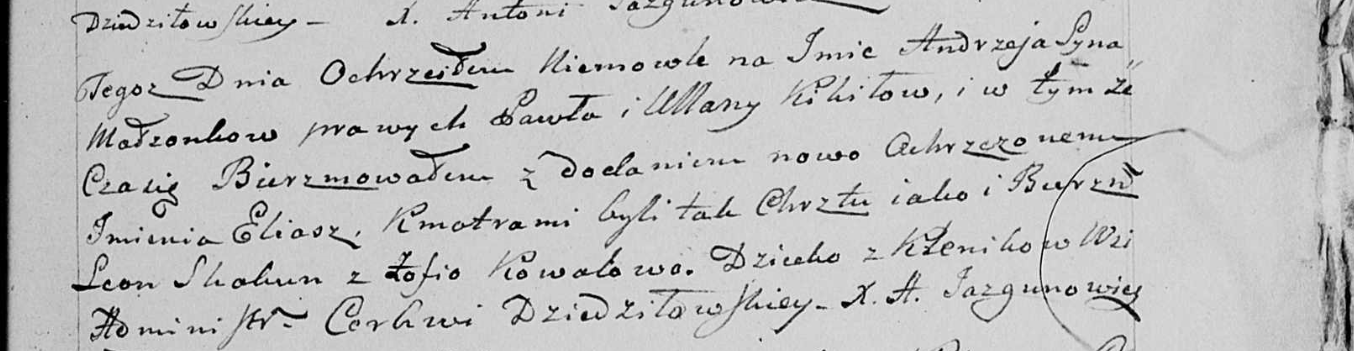 Dziedziłowskiey – X. Antoni Jazgunowicz
Tegoz Dnia Ochrzciłem Niemowle na Imie Andrzeja Syna
Małzonkow prawych Pawła i Ullany Kikiłow, i w tym że
Czasię Bierzmowałem z dodaniem nowo Ochrzczonemu
Imienia Eliasz. Kmotrami byli tak Chrztu iako i Bierzm
Leon Skakun z Zofio Kowalowo. Dziecko z Kłenikow Wsi
Administr– Cerkwi Dziedziłowskiey – X. A. Jazgunowicz